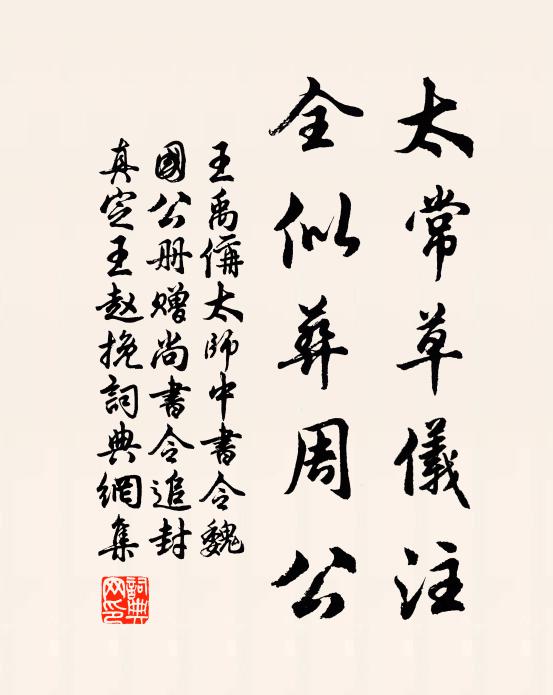 太常草儀注
全似葬周公
王禹偁太師中書令魏
國公册贈尚書令追封
真定王趙挽詞典網集
詞典网印